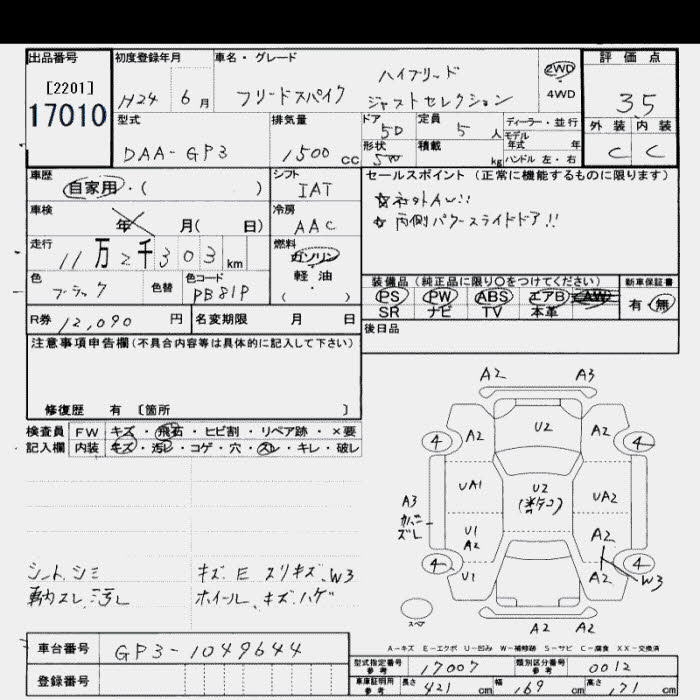 出品番号
[2201]
17010
初度登録年月
H24 6月
車名・グレード
フリードスパイク
ハイブリッド
ジャストセレクション
2WD
4WD
評価点
3.5
外装 内装
C C
型式
DAA-GP3
排気量
1500 cc
ドア
5D
形状
5W
定員
5 人
積載
kg
ディーラー・並行
モデル
年式 年
ハンドル 左・右
車歴
自家用・( )
シフト
IAT
車検
年 月( 日)
冷房
AAC
走行
11万2千303 km
燃料
ガソリン
軽油
( )
色
ブラック
色替
色コード
PB81P
セールスポイント (正常に機能するものに限ります)
☆社外AW!!
☆両側パワースライドドア!!
装備品 (純正品に限り○をつけてください)
PS PW ABS エアB AW
SR ナビ TV 本革
新車保証書
有・無
R券 12,090 円
名変期限 月 日
後日品
注意事項申告欄 (不具合内容等は具体的に記入して下さい)
修復歴 有 [箇所 ]
検査員 FW キズ・飛石・ヒビ割・リペア跡・×要
記入欄 内装 キズ・汚レ・コゲ・穴・スレ・キレ・破レ
シート、シミ
キズ E スリキズ、W3
ホイール、キズ、ハゲ
A2 A3
U2
4 A2 A2 4
UA1 U2 UA2
A3
ズレ
U1
A2
A2
4 U1 A2 4
W3
スペア
A2 A2
A-キズ E-エクボ U-凹み W-補修跡 S-サビ C-腐食 XX-交換済
車台番号 GP3-1049644
登録番号
型式指定番号
参考
17007
類別区分番号
参考
0012
車庫証明用
参考
長さ 421 cm 幅 169 cm 高さ 171 cm